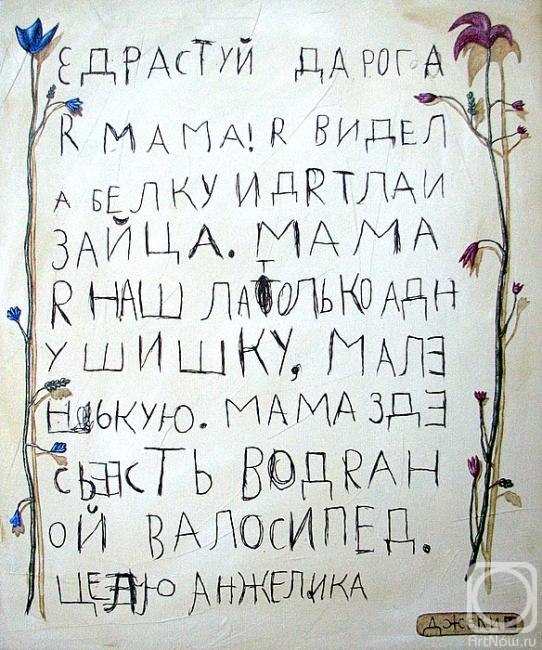 ЕДРАСТУЙ ДАРОГА
Я МАМА! Я ВИДЕЛ
А БЕЛКУ И ДЯТЛА И
ЗАЙЦА. МАМА
Я НАШ ЛА ТОЛЬКО АДН
У ШИШКУ, МАЛЕ
НЬКУЮ. МАМА ЗДЕ
СЬ ЕСТЬ ВОДЯН
ОЙ ВАЛОСИПЕД.
ЦЕЛУЮ АНЖЕЛИКА
ArtNow.ru